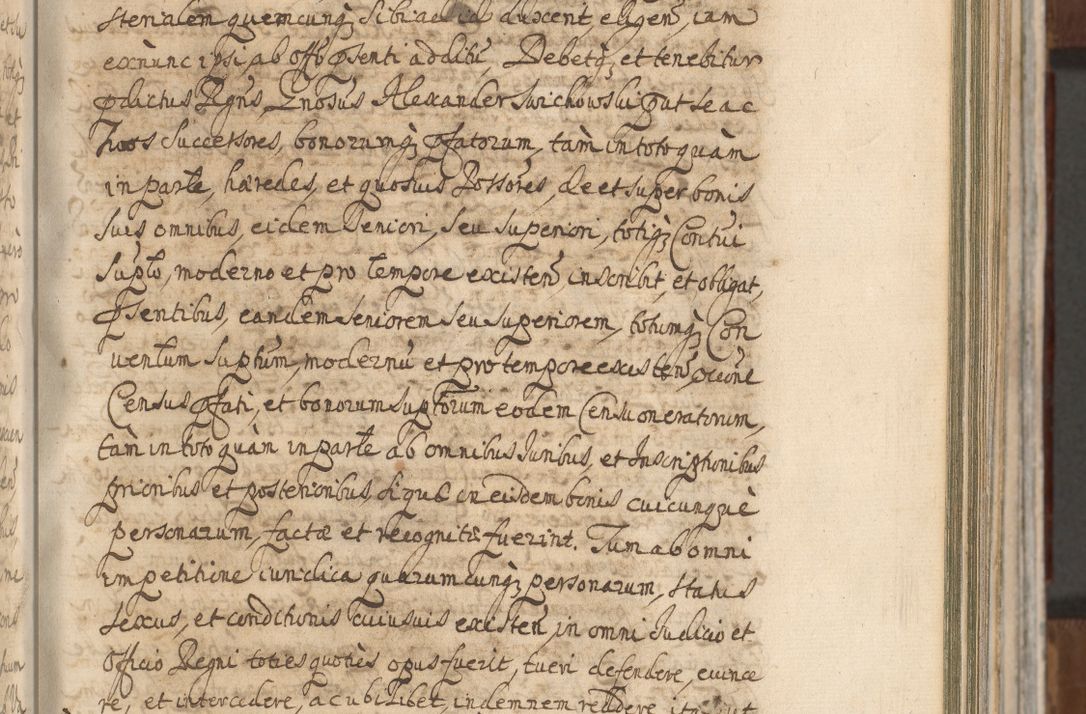 sterialem quemcunq3 sibi ad id duxent eligen, iam
exnunc ipsi ab offo psenti additu, Debetq3, et tenebitur
pdictus Rgnus, Gnosus Alexander Swichowski put se ac
suos Successores, bonorumq3 pfatorum, tàm in toto quàm
in parte, hæredes, et quosvis Possores, de et super bonis
suis omnibus, eidem Seniori, seu superiori, totiq3 Contui
supto, moderno et pro tempore existen, inscribit, et obligat,
psentibus, eandem Seniorem seu superiorem, totumq3 Con
ventum suptum, modernu et pro tempore existen, occone
Census pfati, et bonorum suptorum eodem Censu oneratorum,
tàm in toto quàm in parte ab omnibus Iuribus, et Inscriptionibus
prioribus et posterioribus, si quæ in eisdem bonis cuicunque
personarum, factæ et recognitæ fuerint. Tum ab omni
impetitine iuridica quarumcunq3 personarum, status
sexus, et condctionis cuiusvis existen, in omni Iudicio et
Officio Regni toties quoties opus fuerit, tueri defendere, evince
re, et intercedere, ac ubilibet, indemnem reddere